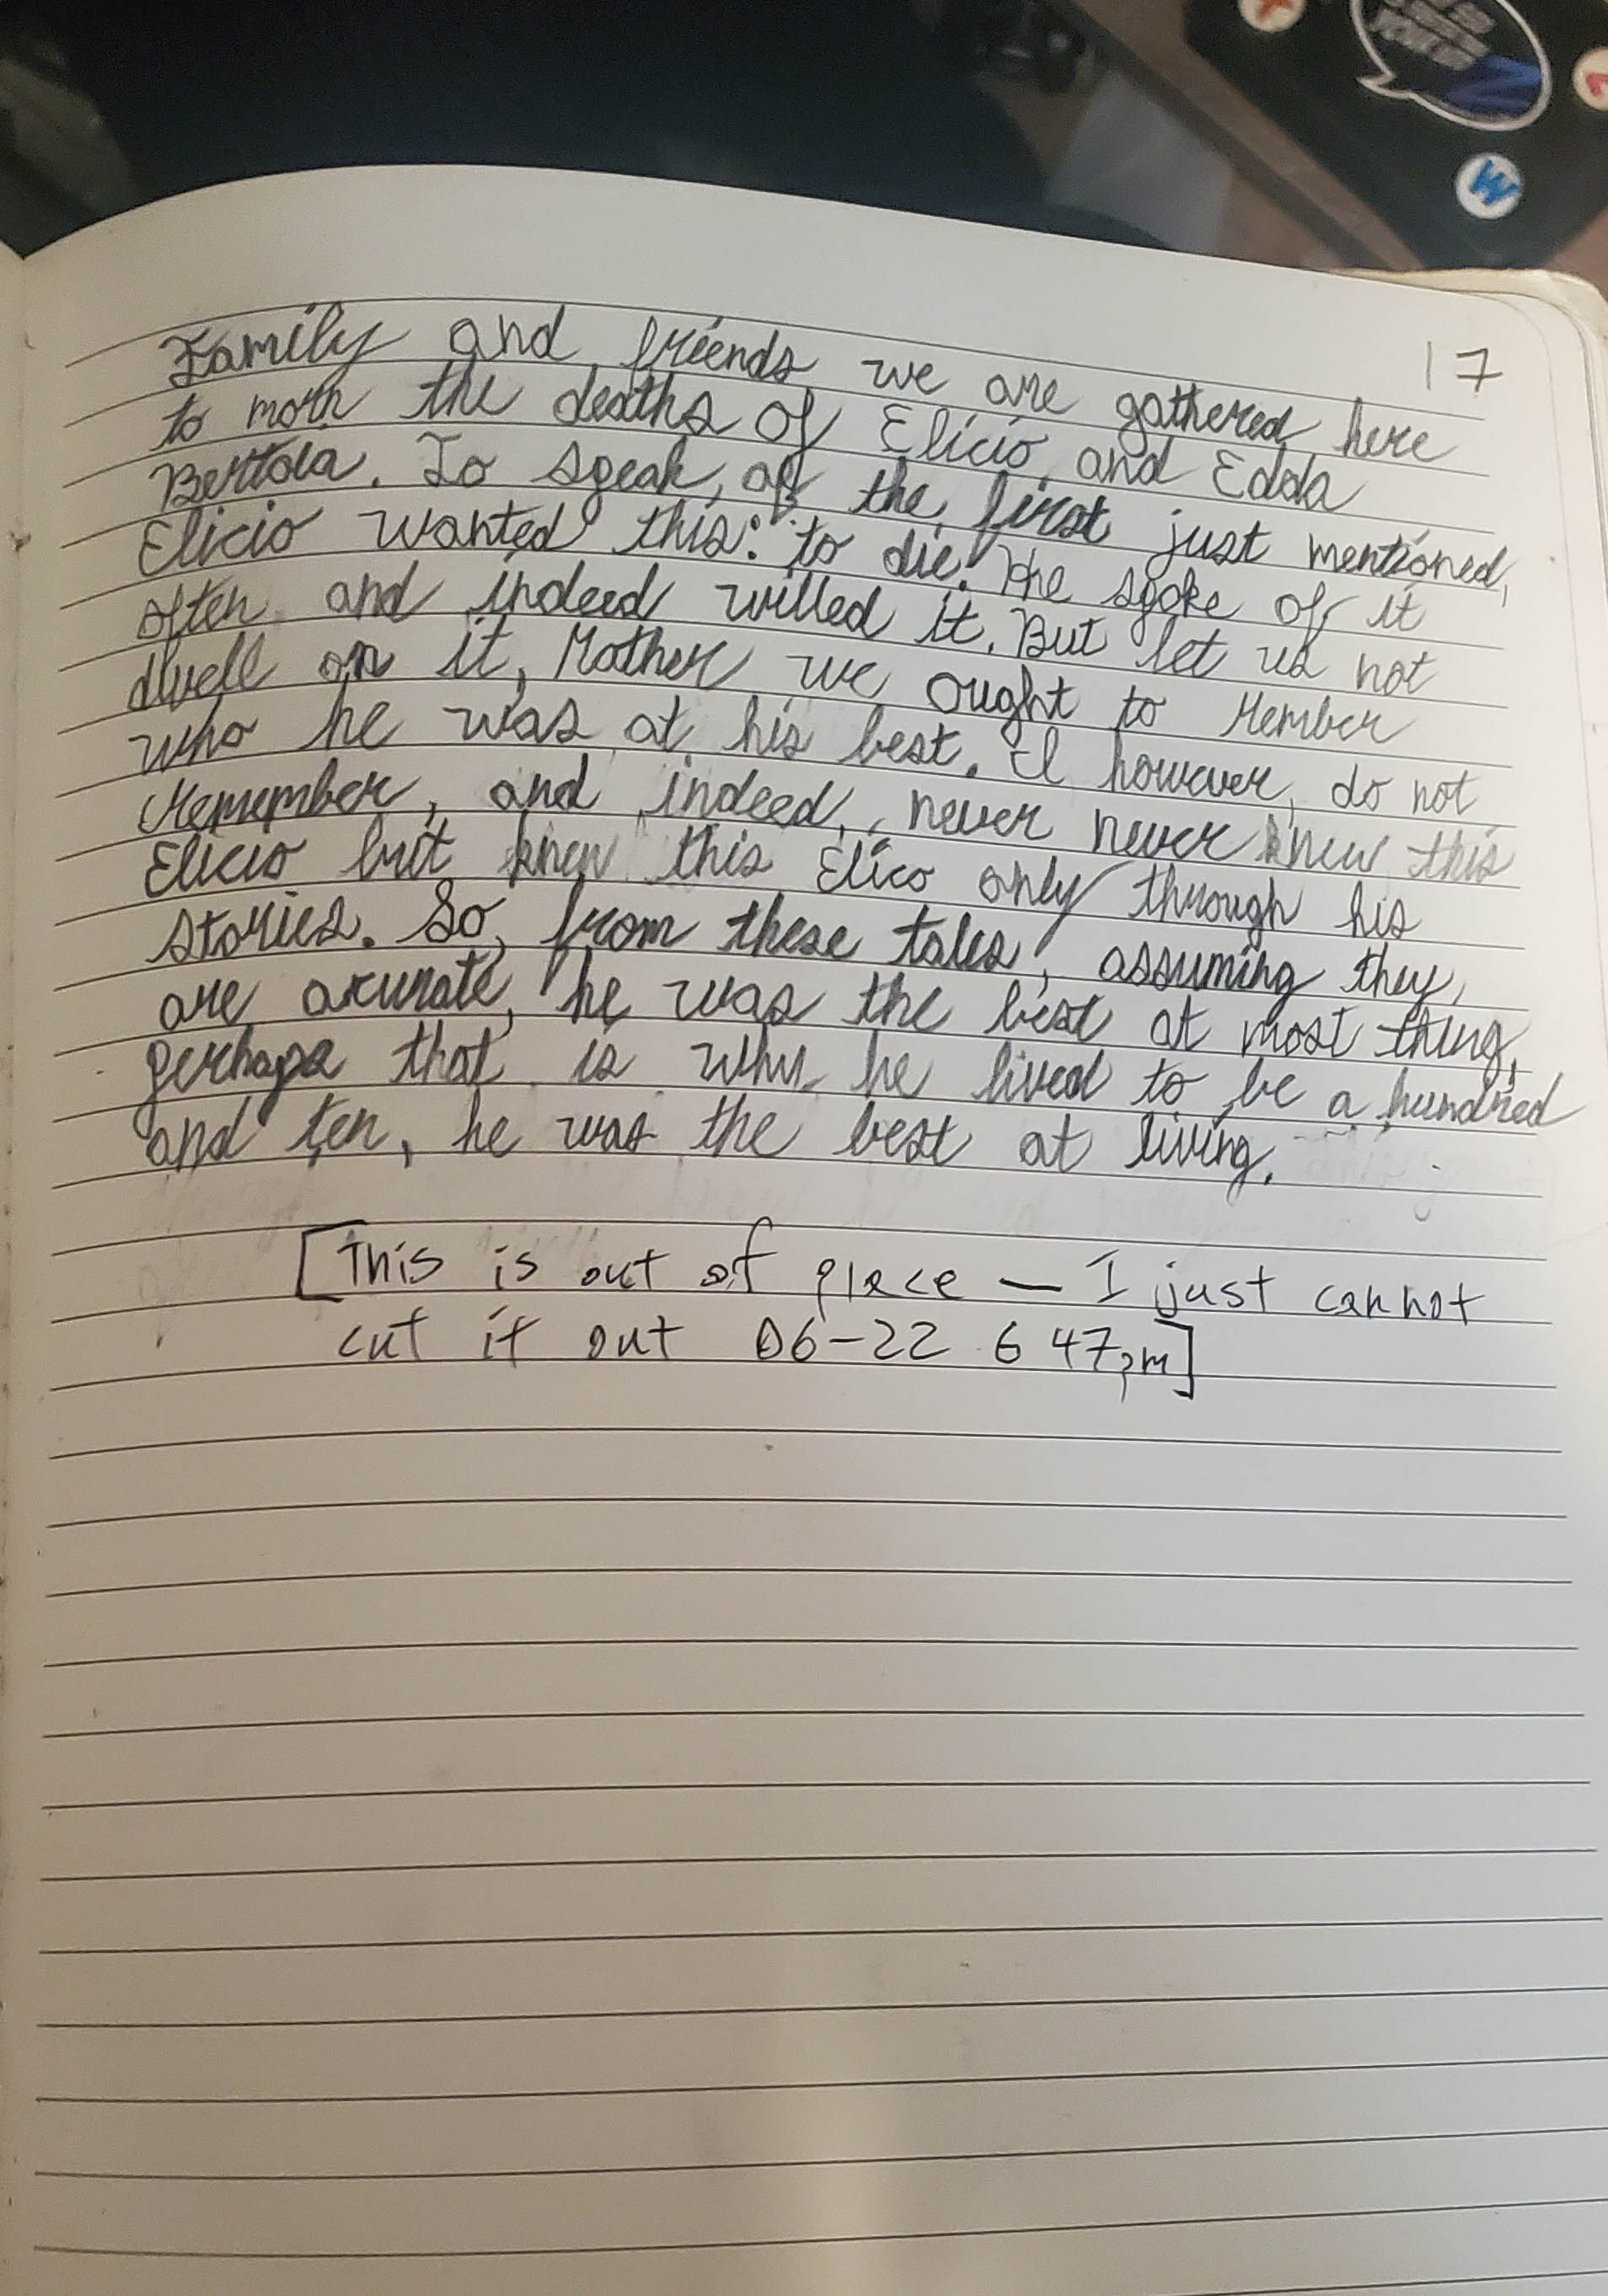 17
Family and friends we are gathered here
to morn the deaths of Elicio and Edda
Bertola. To speak, of the first just mentioned,
Elicio wanted this: to die. He spoke of it
often and indeed willed it. But let us not
dwell on it, Rather we ought to rember
who he was at his best. I however, do not
remember, and indeed, never never knew this
Elicio but knew this Elico only through his
stories. So, from these tales, assuming they,
are acurate, he was the best at most thing,
perhaps that is why he lived to be a hundred
and ten, he was the best at living.
[This is out of place — I just cannot
cut it out 06-22 6 47pm]
W